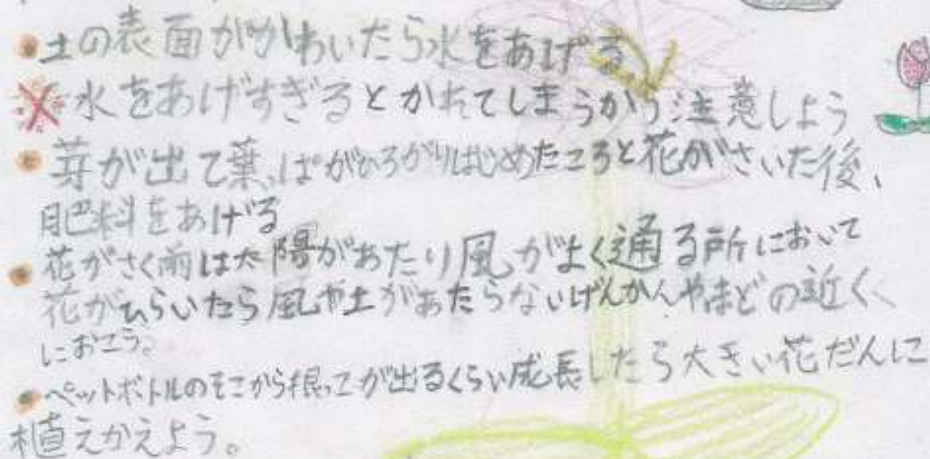 土の表面がかわいたら水をあげる
水をあげすぎるとかれてしまうから注意しよう
芽が出て葉っぱがひろがりはじめたころと花がさいた後、
肥料をあげる
花がさく前は太陽があたり風がよく通る所において
花がひらいたら風や土があたらないげんかんやまどの近く
におこう。
ペットボトルのそこから根っこが出るくらい成長したら大きい花だんに
植えかえよう。